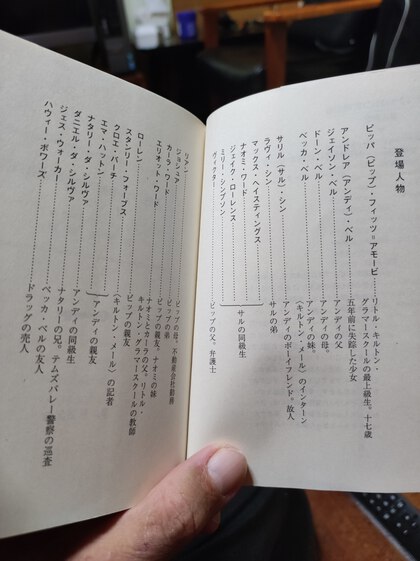 登場人物
ピッパ(ピップ)・フィッツ=アモービ
リトル・キルトン・
グラマースクールの最上級生。十七歳
アンドレア(アンディ)・ベル
五年前に失踪した少女
ジェイソン・ベル
アンディの父
ドーン・ベル
アンディの母。
ベッカ・ベル
アンディの妹。
〈キルトン・メール〉のインターン
サリル(サル)・シン
アンディのボーイフレンド。故人
ラヴィ・シン
サルの弟
マックス・ヘイスティングス
ナオミ・ワード
ジェイク・ローレンス
ミリー・シンプソン
サルの同級生
ヴィクター
ピップの父。弁護士
リアン
ピップの母。不動産会社勤務
ジョシュア
ピップの弟
カーラ・ワード
ピップの親友。ナオミの妹
エリオット・ワード
ナオミとカーラの父。リトル・
キルトン・グラマースクールの教師
ローレン
ピップの親友
スタンリー・フォーブス
〈キルトン・メール〉の記者
クロエ・バーチ
エマ・ハットン
アンディの親友
ナタリー・ダ・シルヴァ
アンディの同級生
ダニエル・ダ・シルヴァ
ナタリーの兄。テムズバレー警察の巡査
ジェス・ウォーカー
ベッカ・ベルの友人
ハウィー・ボワーズ
ドラッグの売人